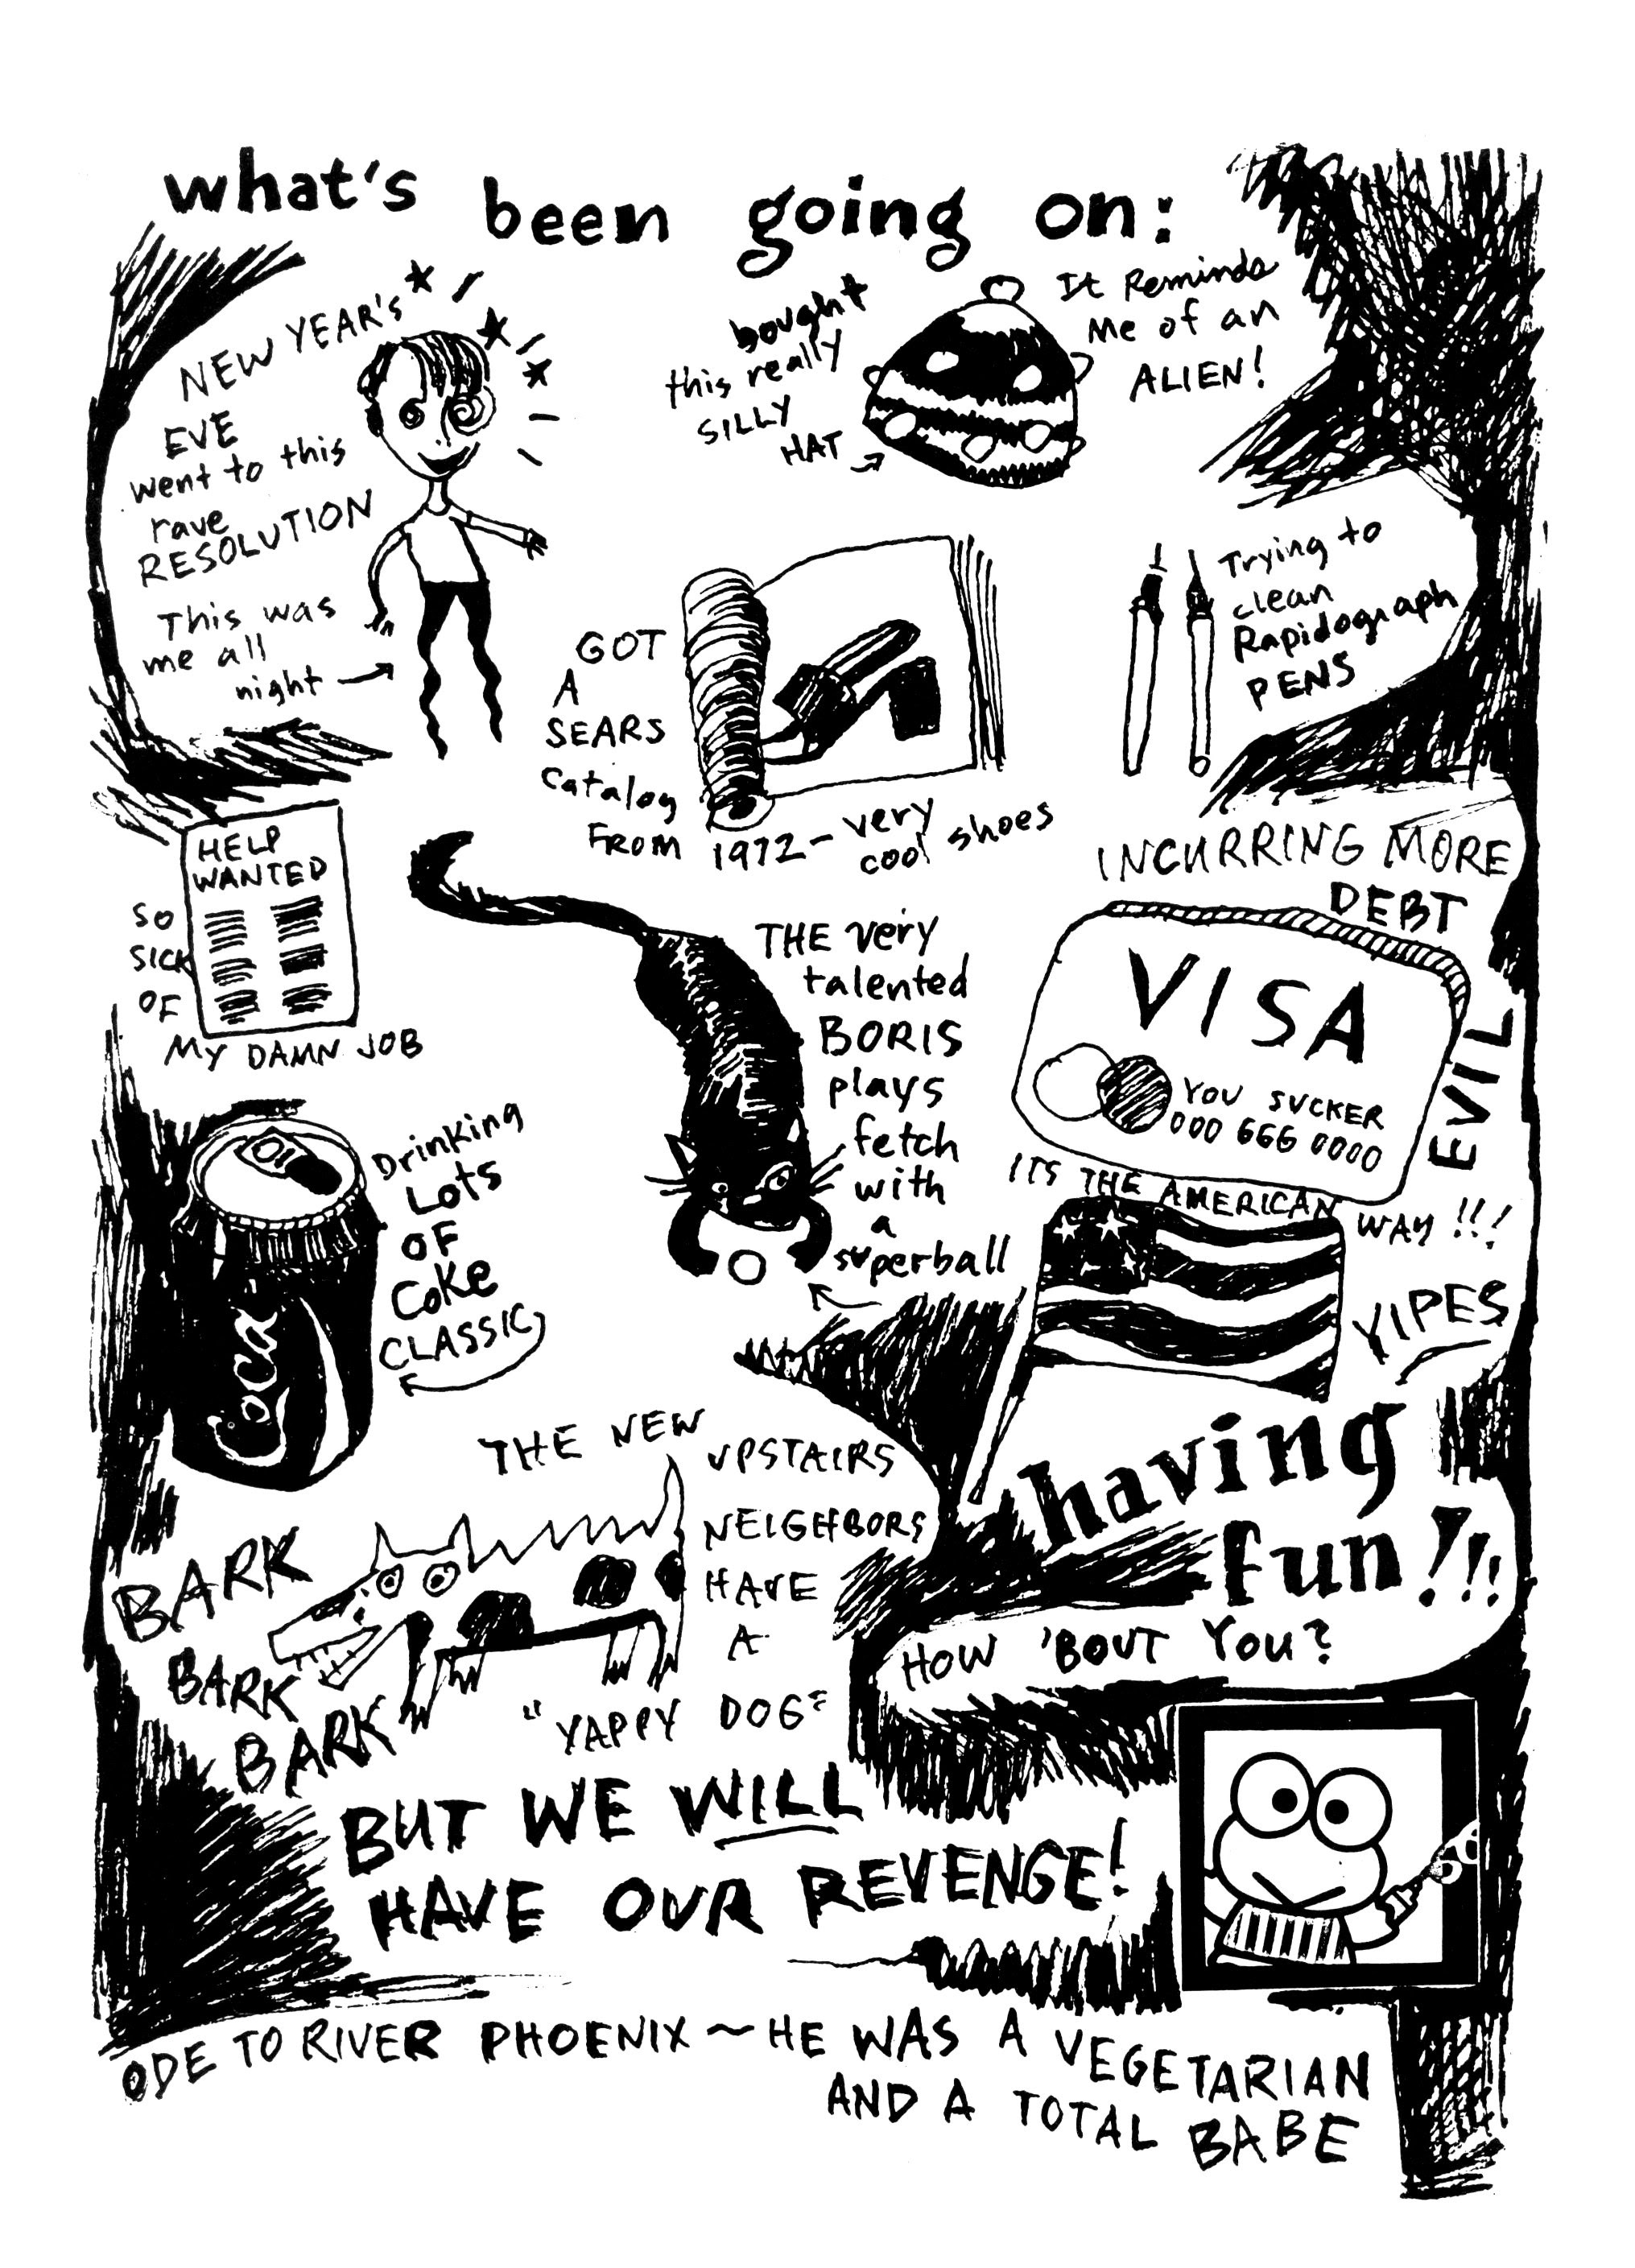 what's been going on:
NEW YEAR'S
EVE
went to this
rave
RESOLUTION
This was
me all
night
bought
this really
SILLY
HAT
It Reminds
Me of an
ALIEN!
GOT
A
SEARS
catalog
FROM 1972 - very
cool shoes
Trying to
clean
Rapidograph
PENS
HELP
WANTED
SO
SICK
OF
MY DAMN JOB
THE very
talented
BORIS
plays
fetch
with
a
superball
INCURRING MORE
DEBT
VISA
YOU SUCKER
000 666 0000
EVIL
ITS THE AMERICAN WAY!!!
YIPES
Drinking
LOTS
OF
Coke
CLASSIC
Coca
THE NEW UPSTAIRS
NEIGHBORS
HAVE
A
"YAPPY DOG"
BARK
BARK
BARK
having
fun!!!
HOW 'BOUT YOU?
BUT WE WILL
HAVE OUR REVENGE!
ODE TO RIVER PHOENIX ~ HE WAS A VEGETARIAN
AND A TOTAL BABE